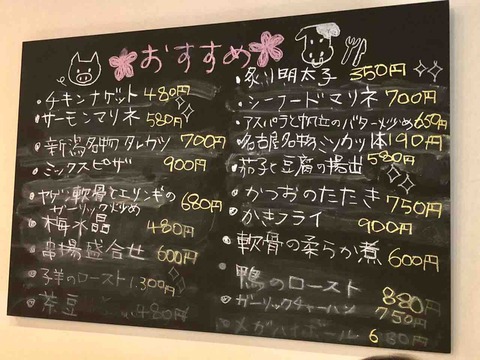 おすすめ
・チキンナゲット 480円
・サーモンマリネ 580円
・新潟名物タレカツ 700円
・ミックスピザ 900円
・ヤゲン軟骨とエリンギの
ガーリック炒め 680円
・梅水晶 480円
・串揚盛合せ 600円
・子羊のロースト 1.300円
・茶豆 480円
・炙り明太子 350円
・シーフードマリネ 700円
・アスパラと帆立のバターメ炒め 650円
・名古屋名物ミソカツ 1本190円
・茄子と豆腐の揚出 580円
・かつおのたたき 750円
・かきフライ 900円
・軟骨の柔らか煮 600円
・鴨のロースト 880円
・ガーリックチャーハン 750円
メガハイボール 680円